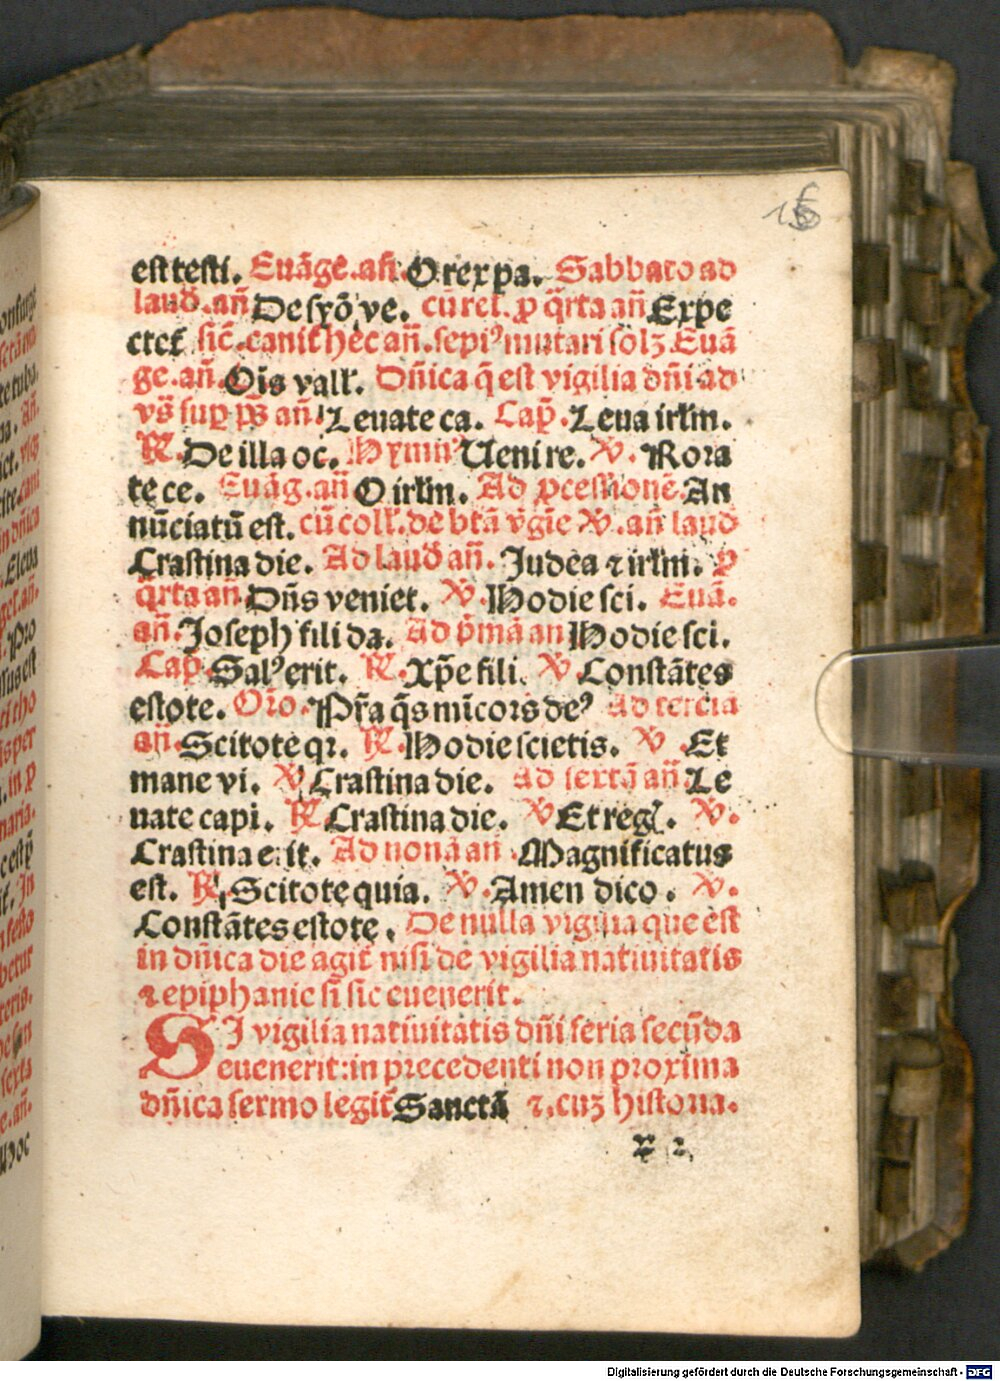 est testi. Euāge.añ. O rex pa. Sabbato ad
laud̄.añ De syō ve. cū rel. ꝑ q̄rta añ Expe
ctet̄ sic̄.canit̄ hec añ.sepiꝰ mutari solꝫ Euā
ge.añ. Oīs vall̄. Dñica q̄ est vigilia dñi ad
vs̄ suꝑ ps̄ añ. Leuate ca. Cap̄. Leua irl̄m.
℟. De illa oc. Hymnꝰ Ueni re. ℣. Rora
te ce. Euāg.añ O irl̄m. Ad ꝓcessionē. An
nūciatū est. cū coll̄. de btā v̄gīe ℣. añ laud̄
Crastina die. Ad laud̄ añ. Judea ⁊ irl̄m. ꝑ
q̄rta añ Dñs veniet. ℣. Hodie sci. Euā.
añ. Joseph fili da. Ad p̄mā an Hodie sci.
Cap̄. Salꝰ erit. ℟. Xp̄e fili. ℣ Constātes
estote. Oro. Pr̄a q̄s mīcors deꝰ Ad tercia
añ. Scitote qr. ℟. Hodie scietis. ℣ Et
mane vi. ℣ Crastina die. ad sextā añ Le
uate capi. ℟ Crastina die. ℣ Et reḡ. ℣.
Crastina erit. Ad nonā an Magnificatus
est. ℟. Scitote quia. ℣. Amen dico. ℣.
Constātes estote. De nulla vigilia que est
in dñica die agit̄ nisi de vigilia natiuitatis
⁊ epiphanie si sic euenerit.
SI vigilia natiuitatis dñi feria secūda
euenerit: in precedenti non proxima
dñica sermo legit̄ Sanctā ⁊, cuꝫ historia.
Digitalisierung gefördert durch die Deutsche Forschungsgemeinschaft - DFG